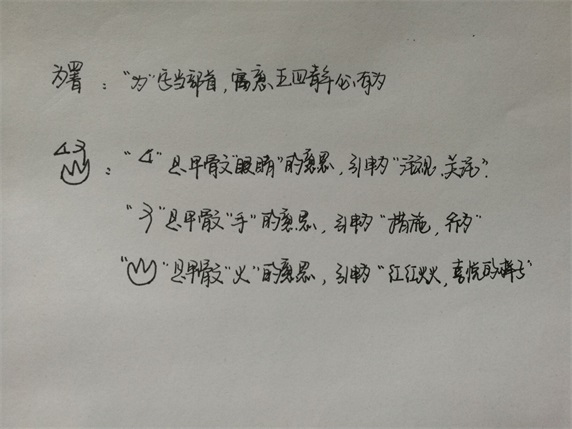 ：“为”字当部首，寓意五四青年必有为
：“”是甲骨文“眼睛”的意思，引申为“注视，关注”。
“”是甲骨文“手”的意思，引申为“措施，行为”
“”是甲骨文“火”的意思，引申为“红红火火，喜悦的样子”